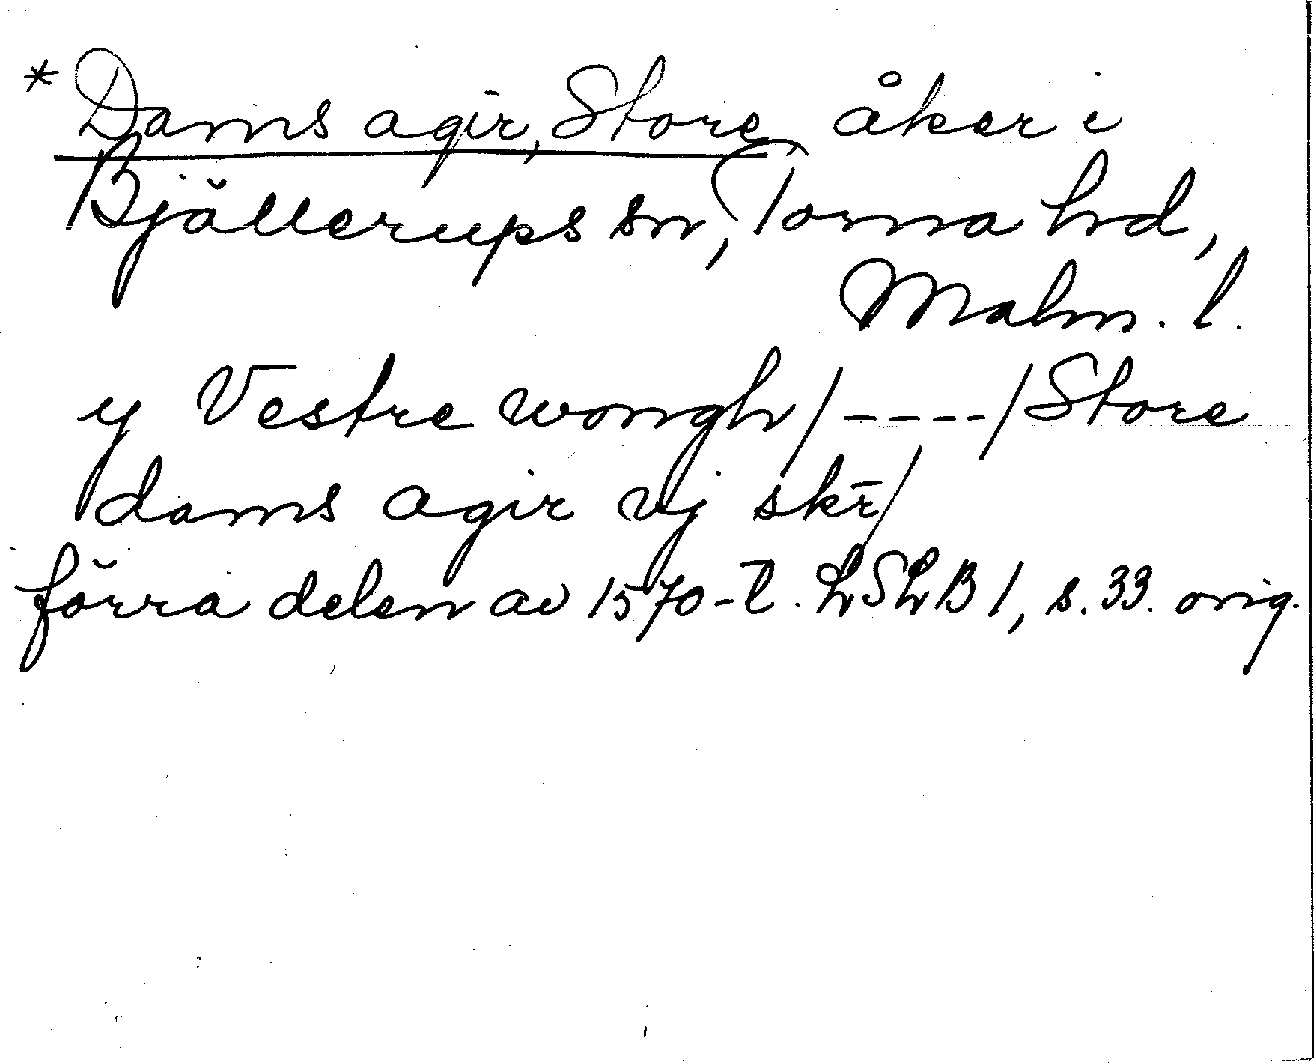 * Dams agir, Store åker i
Bjällerups sn, Torna hd,
Malm. l.
y Vestre wongh /----/ Store
dams agir vj skr̄/
förra delen av 1570-t. LSLB 1, s. 33. orig.